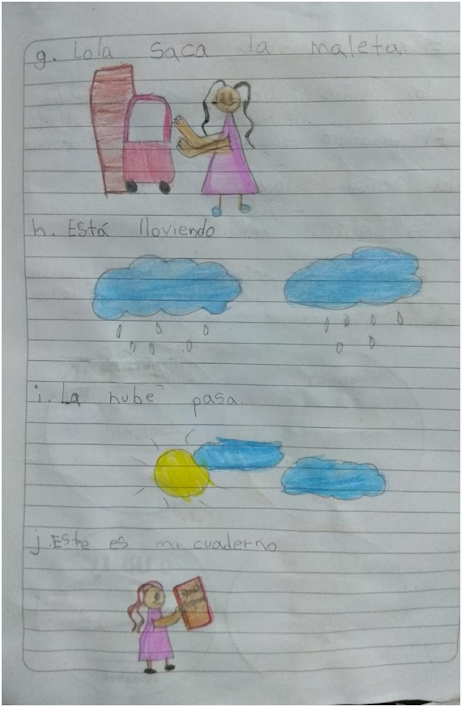 g. Lola saca la maleta.
h. Está lloviendo
i. La nube pasa.
j. Este es mi cuaderno